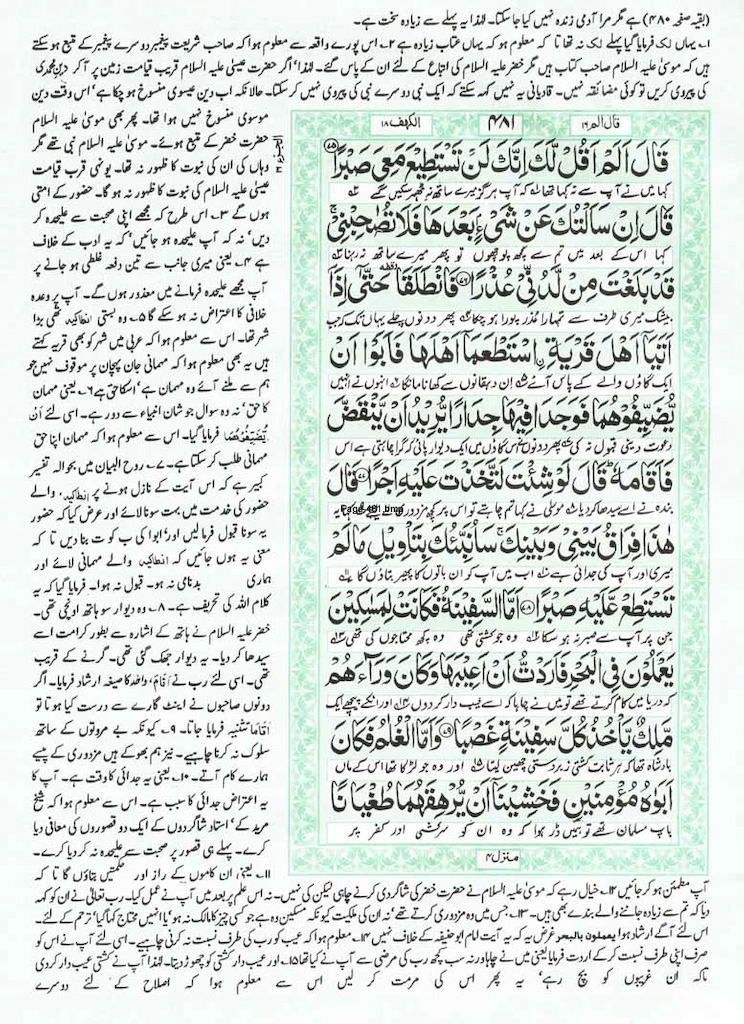 (بقیہ صفحہ ۴۸۰) ہے مگر مرا آدمی زندہ نہیں کیا جا سکتا۔ لہٰذا یہ پہلے سے زیادہ سخت ہے۔
۱۔ یہاں لک فرمایا گیا پہلے لک نہ تھا تا کہ معلوم ہو کہ یہاں عتاب زیادہ ہے ۲۔ اس پورے واقعہ سے معلوم ہوا کہ صاحب شریعت پیغمبر دوسرے پیغمبر کے متبع ہو سکتے
ہیں کہ موسیٰ علیہ السلام صاحب کتاب ہیں مگر خضر علیہ السلام کی اتباع کے لئے ان کے پاس گئے۔ لہٰذا' اگر حضرت عیسیٰ علیہ السلام قریب قیامت زمین پر آ کر دین محمدی
کی پیروی کریں تو کوئی مضائقہ نہیں۔ قادیانی یہ نہیں کہہ سکتے کہ ایک نبی دوسرے نبی کی پیروی نہیں کر سکتا۔ حالانکہ اب دین عیسوی منسوخ ہو چکا ہے' اس وقت دین
قال الم ۱۶
۴۸۱
الکھف ۱۸
قَالَ اَلَمْ اَقُلْ لَّكَ اِنَّكَ لَنْ تَسْتَطِيْعَ مَعِيَ صَبْرًا ﴿۷۵﴾
کہا میں نے آپ سے نہ کہا تھا کہ آپ ہرگز میرے ساتھ نہ ٹھہر سکیں گے
قَالَ اِنْ سَاَلْتُكَ عَنْ شَيْءٍۭ بَعْدَهَا فَلَا تُصٰحِبْنِيْ
کہا اس کے بعد میں تم سے کچھ پوچھوں تو پھر میرے ساتھ نہ رہنا
قَدْ بَلَغْتَ مِنْ لَّدُنِّيْ عُذْرًا ﴿۷۶﴾ فَانْطَلَقَا حَتّٰۤى اِذَاۤ
بیشک میری طرف سے تمہارا عذر پورا ہو چکا پھر دونوں چلے یہاں تک کہ جب
اَتَيَاۤ اَهْلَ قَرْيَةِ ِۨاسْتَطْعَمَاۤ اَهْلَهَا فَاَبَوْا اَنْ
ایک گاؤں والے کے پاس آئے ان دہقانوں سے کھانا مانگا انہوں نے انہیں
يُّضَيِّفُوْهُمَا فَوَجَدَا فِيْهَا جِدَارًا يُّرِيْدُ اَنْ يَّنْقَضَّ
دعوت دینی قبول نہ کی پھر دونوں نے اس گاؤں میں ایک دیوار پائی کہ گرا چاہتی ہے اس
فَاَقَامَهٗ قَالَ لَوْ شِئْتَ لَتَّخَذْتَ عَلَيْهِ اَجْرًا ﴿۷۷﴾ قَالَ
بندہ نے اسے سیدھا کر دیا موسیٰ نے کہا تم چاہتے تو اس پر کچھ مزدوری لے لیتے کہا یہ
Page-481.bmp
هٰذَا فِرَاقُ بَيْنِيْ وَبَيْنِكَ سَاُنَبِّئُكَ بِتَاْوِيْلِ مَا لَمْ
میری اور آپ کی جدائی ہے اب میں آپ کو ان باتوں کا پھیر بتاؤں گا
تَسْتَطِعْ عَّلَيْهِ صَبْرًا ﴿۷۸﴾ اَمَّا السَّفِيْنَةُ فَكَانَتْ لِمَسٰكِيْنَ
جن پر آپ سے صبر نہ ہو سکا وہ جو کشتی تھی وہ کچھ محتاجوں کی تھی
يَعْمَلُوْنَ فِي الْبَحْرِ فَاَرَدْتُّ اَنْ اَعِيْبَهَا وَكَانَ وَرَآءَهُمْ
کہ دریا میں کام کرتے تھے تو میں نے چاہا کہ اسے عیب دار کر دوں اور انکے پیچھے ایک
مَّلِكٌ يَّاْخُذُ كُلَّ سَفِيْنَةٍ غَصْبًا ﴿۷۹﴾ وَاَمَّا الْغُلٰمُ فَكَانَ
بادشاہ تھا کہ ہر ثابت کشتی زبردستی چھین لیتا اور وہ جو لڑکا تھا اس کے ماں
اَبَوٰهُ مُؤْمِنَيْنِ فَخَشِيْنَاۤ اَنْ يُّرْهِقَهُمَا طُغْيَانًا
باپ مسلمان تھے تو ہمیں ڈر ہوا کہ وہ ان کو سرکشی اور کفر پر
منزل ۴
موسوی منسوخ نہیں ہوا تھا۔ پھر بھی موسیٰ علیہ السلام
حضرت خضر کے متبع ہوئے۔ موسیٰ علیہ السلام نبی تھے مگر
وہاں کی ان کی نبوت کا ظہور نہ تھا۔ یونہی قرب قیامت
عیسیٰ علیہ السلام کی نبوت کا ظہور نہ ہو گا۔ حضور کے امتی
ہوں گے ۳۔ اس طرح کہ مجھے اپنی صحبت سے علیحدہ کر
دیں' نہ کہ آپ علیحدہ ہو جائیں' کہ یہ ادب کے خلاف
ہے ۴۔ یعنی میری جانب سے تین دفعہ غلطی ہو جانے پر
آپ مجھے علیحدہ فرمانے میں معذور ہوں گے۔ آپ پر وعدہ
خلافی کا اعتراض نہ ہو سکے گا ۵۔ وہ بستی انطاکیہ تھی بڑا
شہر تھا۔ اس سے معلوم ہوا کہ عربی میں شہر کو بھی قریہ کہتے
ہیں یہ بھی معلوم ہوا کہ مہمانی جان پہچان پر موقوف نہیں جو
ہم سے ملنے آئے وہ مہمان ہے' اسکا حق ہے ۶۔ یعنی مہمان
کا حق' نہ وہ سوال جو شان انبیاء سے دور ہے۔ اسی لئے اَنْ
يُّضَيِّفُوْهُمَا فرمایا گیا۔ اس سے معلوم ہوا کہ مہمان اپنا حق
مہمانی طلب کر سکتا ہے۔ ۷۔ روح البیان میں بحوالہ تفسیر
کبیر ہے کہ اس آیت کے نازل ہونے پر انطاکیہ والے
حضور کی خدمت میں بہت سونا لائے اور عرض کیا کہ حضور
یہ سونا قبول فرما لیں اور' ابوا کی ب کو ت بنا دیں تا کہ
معنی یہ ہوں جائیں کہ انطاکیہ والے مہمانی لائے اور
ہماری بدنامی نہ ہو۔ قبول نہ ہوا۔ فرمایا گیا کہ یہ
کلام اللہ کی تحریف ہے۔ ۸۔ وہ دیوار سو ہاتھ اونچی تھی۔
خضر علیہ السلام نے ہاتھ کے اشارہ سے بطور کرامت اسے
سیدھا کر دیا۔ یہ دیوار جھک گئی تھی۔ گرنے کے قریب
تھی۔ اسی لئے رب نے اَقَامَ، واحد کا صیغہ ارشاد فرمایا۔ اگر
دونوں صاحبوں نے اینٹ گارے سے درست کیا ہوتا تو
اَقَامَا تثنیہ فرمایا جاتا۔ ۹۔ کیونکہ بے مروتوں کے ساتھ
سلوک نہ کرنا چاہیے۔ نیز ہم بھوکے ہیں مزدوری کے پیسے
ہمارے کام آتے۔ ۱۰۔ یعنی یہ جدائی کا وقت ہے۔ آپ کا
یہ اعتراض جدائی کا سبب ہے۔ اس سے معلوم ہوا کہ شیخ
مرید کے' استاد شاگردوں کے ایک دو قصوروں کی معافی دیا
کرے۔ پہلے ہی قصور پر صحبت سے علیحدہ نہ کر دیا کرے۔
۱۱۔ یعنی ان کاموں کے راز اور حکمتیں بتاؤں گا تا کہ
آپ مطمئن ہو کر جائیں ۱۲۔ خیال رہے کہ موسیٰ علیہ السلام نے حضرت خضر کی شاگردی کرنے چاہی لیکن کی نہیں۔ نہ اس علم پر بعد میں آپ نے عمل کیا۔ رب تعالیٰ نے ان کو کہہ
دیا کہ تم سے زیادہ جاننے والے بندے بھی ہیں۔ ۱۳۔ جس میں وہ مزدوری کرتے تھے' نہ ان کی ملکیت کیونکہ مسکین وہ ہے جو کسی چیز کا مالک نہ ہو' یا انہیں محتاج کہا گیا' ترحم کے لئے۔
اس لئے آگے ارشاد ہوا یعملون بالبحر غرض یہ کہ یہ آیت امام ابو حنیفہ کے خلاف نہیں ۱۴۔ معلوم ہوا کہ عیب کو رب کی طرف نسبت نہ کرنی چاہیے۔ اسی لئے آپ نے اس کو
صرف اپنی طرف نسبت کر کے اردت فرمایا یعنی میں نے چاہا ورنہ سب کچھ رب کی مرضی سے آپ نے کیا تھا ۱۵۔ اور عیب دار کشتی کو چھوڑ دیتا۔ لہٰذا آپ نے کشتی عیب دار کر دی
تاکہ ان غریبوں کو بچ رہے' یہ پھر اس کی مرمت کر لیں اس سے معلوم ہوا کہ اصلاح کے لئے دوسرے